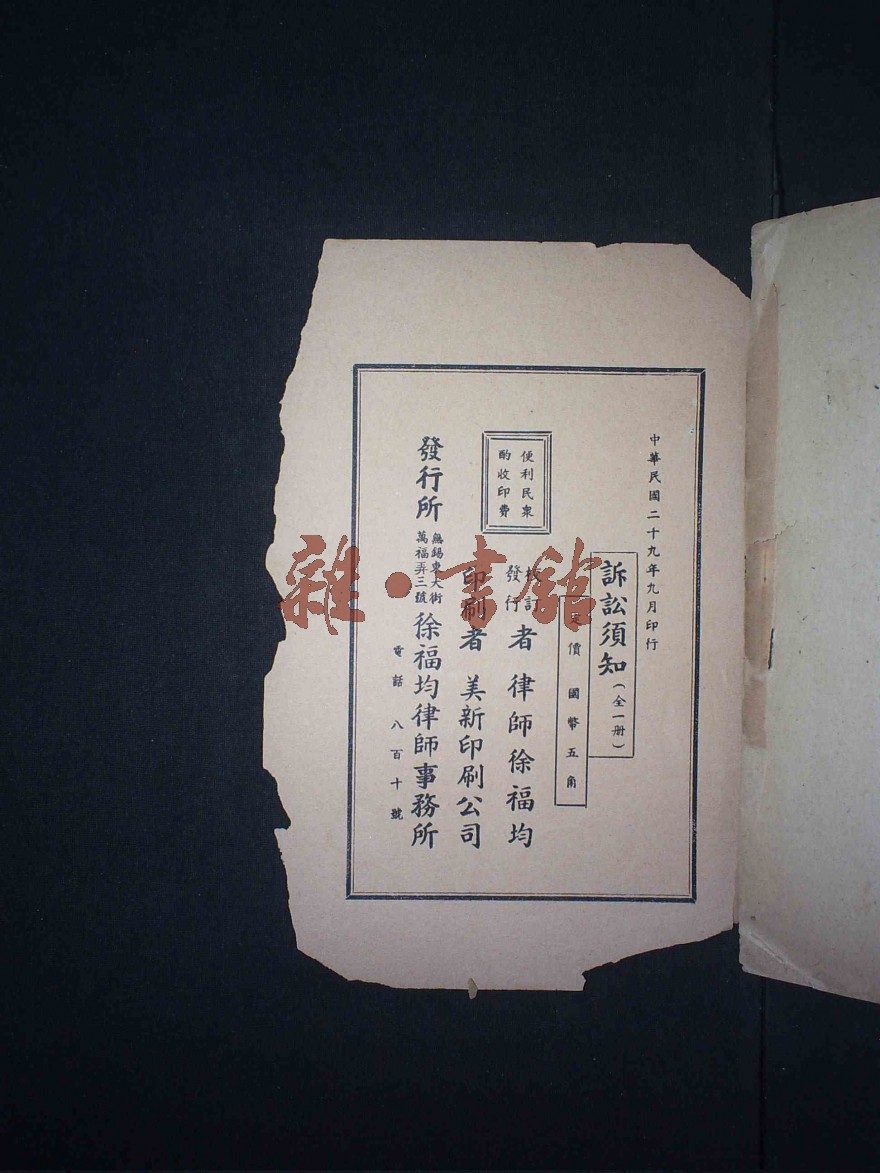 中華民國二十九年九月印行
訴訟須知(全一册)
定價國幣五角
便利民衆
酌收印費
校訂
發行
者 律師徐福均
印刷者 美新印刷公司
發行所
無錫東大街
萬福弄三號
徐福均律師事務所
電話 八百十號
雜·書館